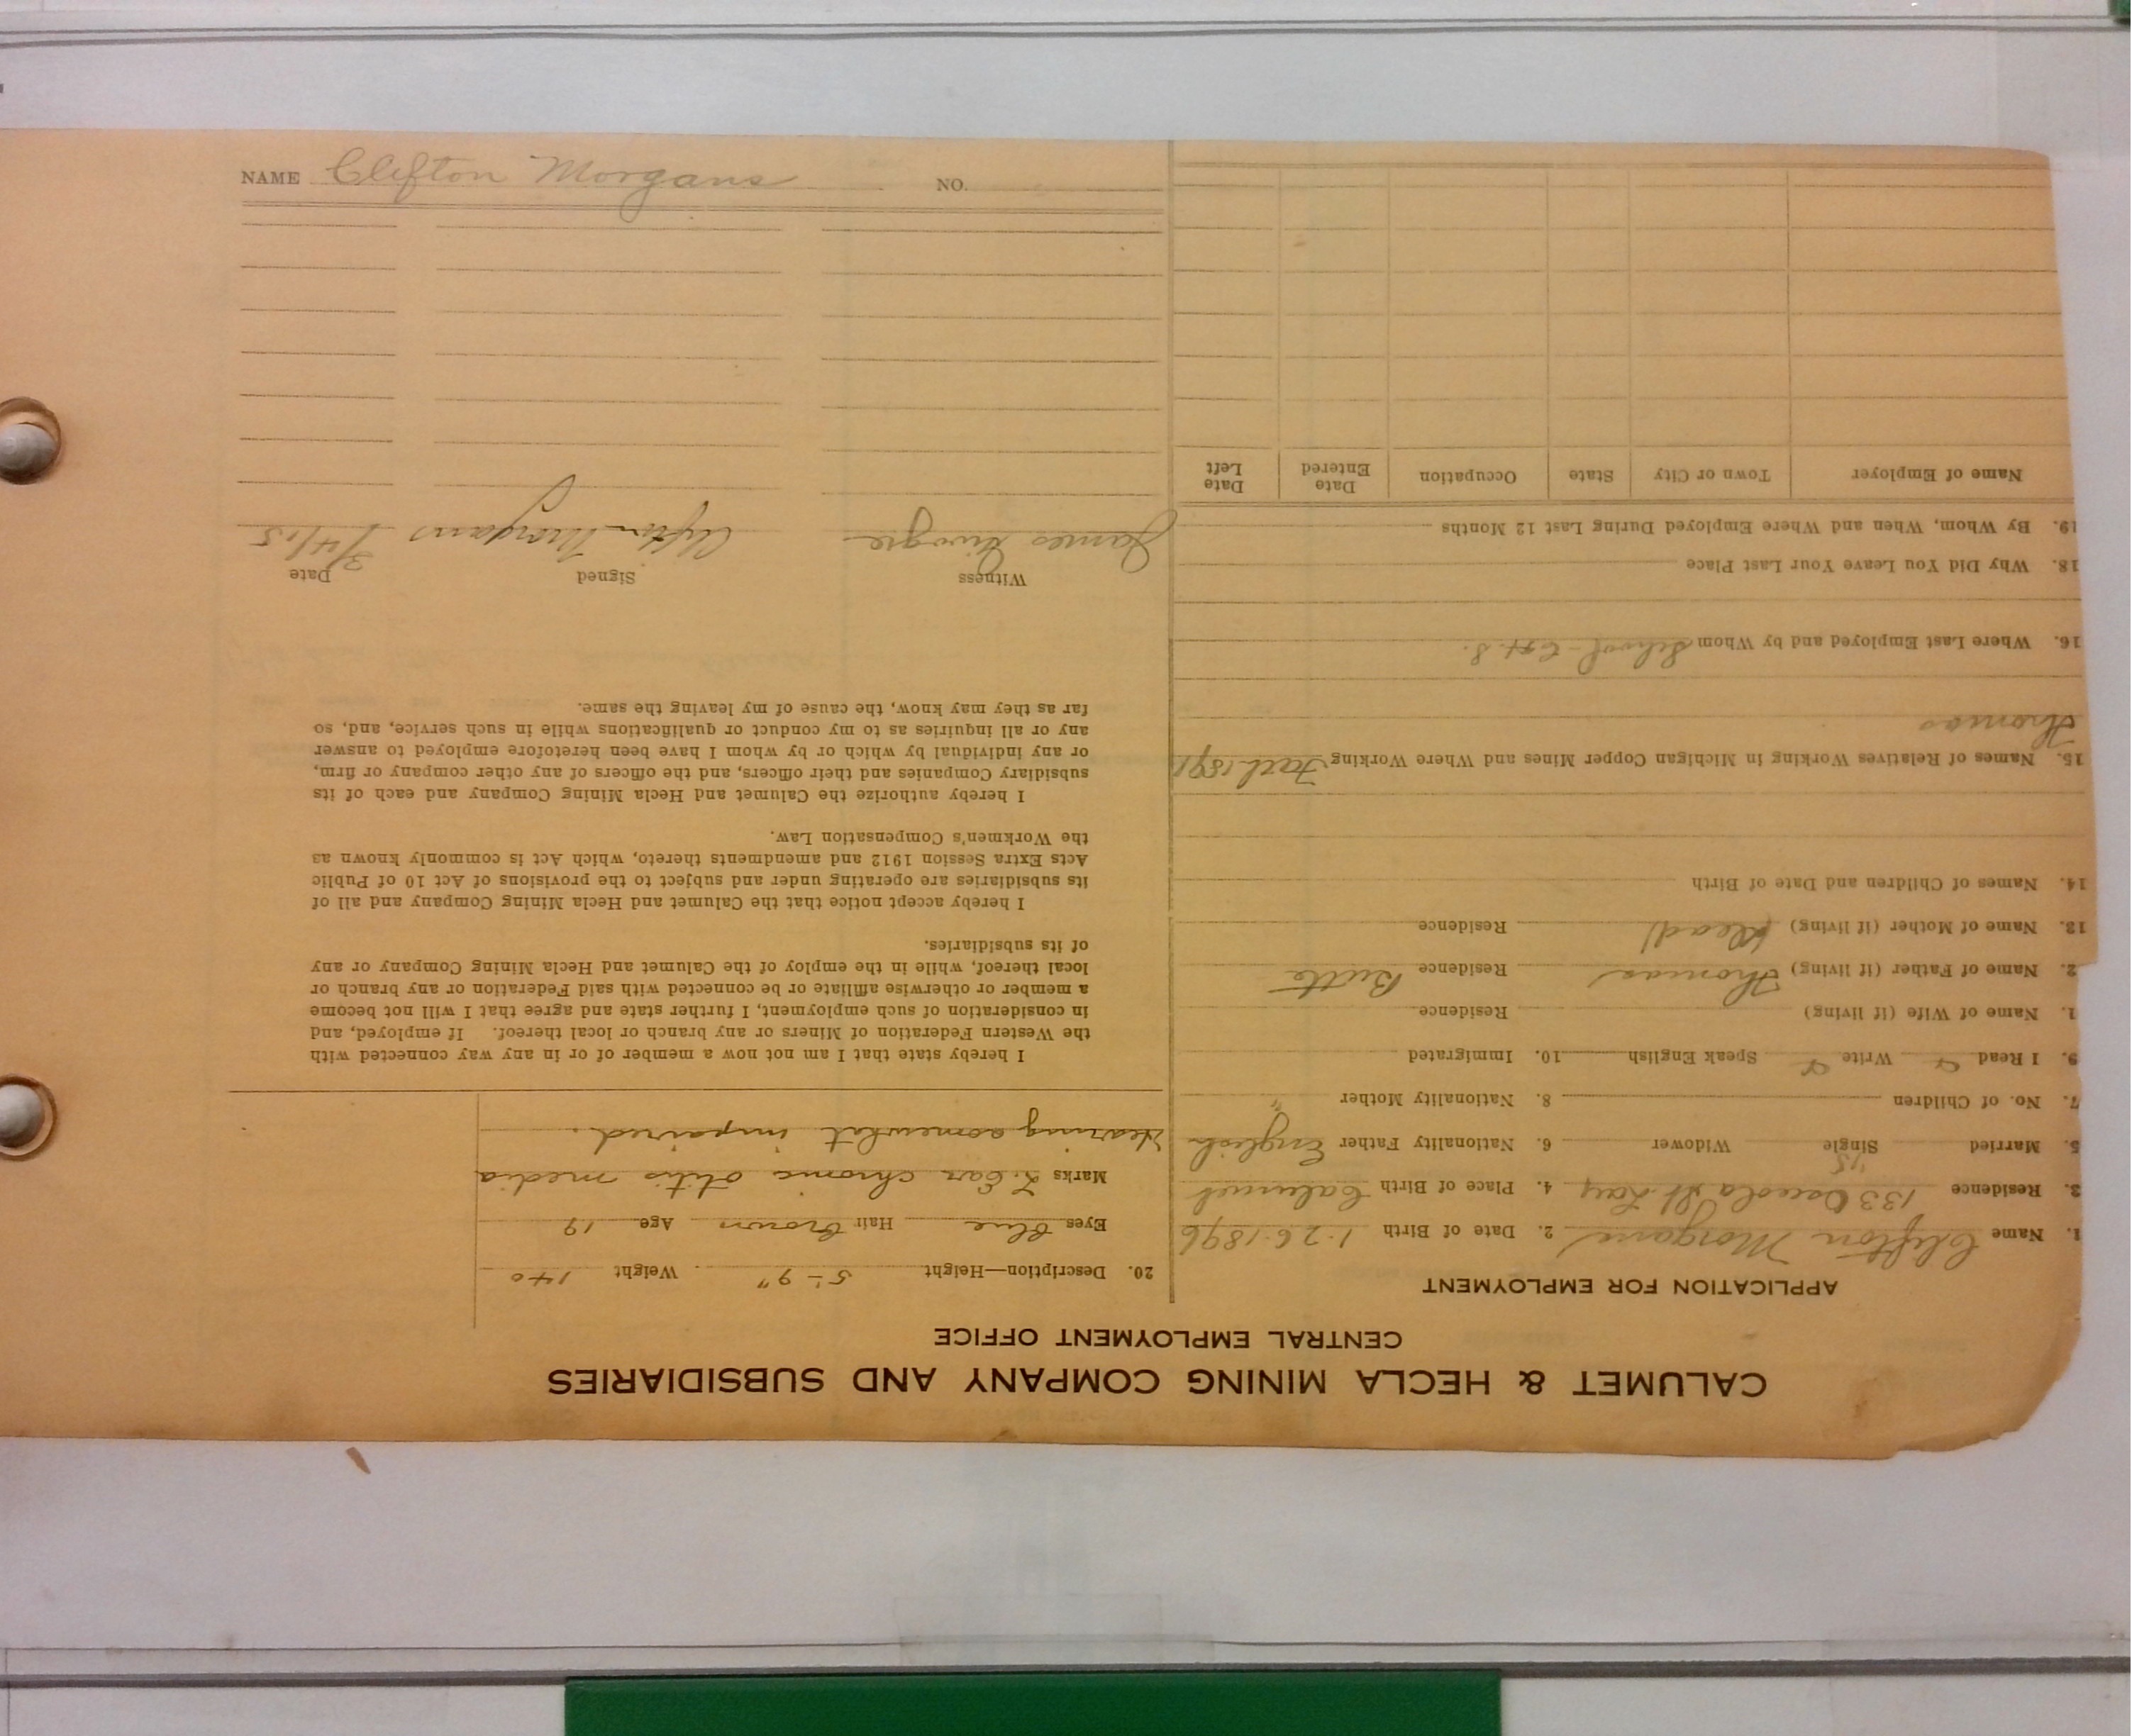 CALUMET & HECLA MINING COMPANY AND SUBSIDIARIES
CENTRAL EMPLOYMENT OFFICE
APPLICATION FOR EMPLOYMENT
1. Name Clifton Morgans 2. Date of Birth 1-26-1896
3. Residence 133 Osceola St. Lau 4. Place of Birth Calumet
5. Married Single Widower 6. Nationality Father English
7. No. of Children 8. Nationality Mother "
9. I Read Write Speak English 10. Immigrated
1. Name of Wife (if living) Residence
2. Name of Father (if living) Thomas Residence Butte
13. Name of Mother (if living) (dead) Residence
14. Names of Children and Date of Birth
15. Names of Relatives Working in Michigan Copper Mines and Where Working
Thomas
16. Where Last Employed and by Whom School
18. Why Did You Leave Your Last Place
19. By Whom, When and Where Employed During Last 12 Months
Name of Employer Town or City State Occupation Date Entered Date Left
20. Description—Height 5'-9" Weight 140
Eyes Blue Hair Brown Age 19
Marks L. Ear chronic otitis media
Hearing somewhat impaired.
I hereby state that I am not now a member of or in any way connected with
the Western Federation of Miners or any branch or local thereof. If employed, and
in consideration of such employment, I further state and agree that I will not become
a member or otherwise affiliate or be connected with said Federation or any branch or
local thereof, while in the employ of the Calumet and Hecla Mining Company or any
of its subsidiaries.
I hereby accept notice that the Calumet and Hecla Mining Company and all of
its subsidiaries are operating under and subject to the provisions of Act 10 of Public
Acts Extra Session 1912 and amendments thereto, which Act is commonly known as
the Workmen's Compensation Law.
I hereby authorize the Calumet and Hecla Mining Company and each of its
subsidiary Companies and their officers, and the officers of any other company or firm,
or any individual by which or by whom I have been heretofore employed to answer
any or all inquiries as to my conduct or qualifications while in such service, and, so
far as they may know, the cause of my leaving the same.
Witness Signed Date
James Clifton Morgans 3/4/15
NAME Clifton Morgans NO.